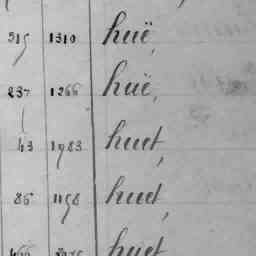 215 1310 huë,
237 1266 huë,
43 1983 huet,
86 1158 huet,
huet